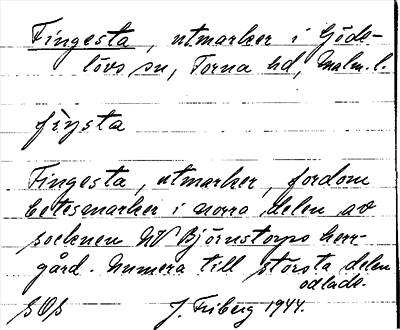 Fingesta, utmarker i Göds-
lövs sn, Torna hd, Malm. l.
fiŋsta
Fingesta, utmarker, fordom
betesmarker i norra delen av
socknen NV Björnstorps herr-
gård. Numera till största delen
odlade.
SOs J. Friberg 1944.